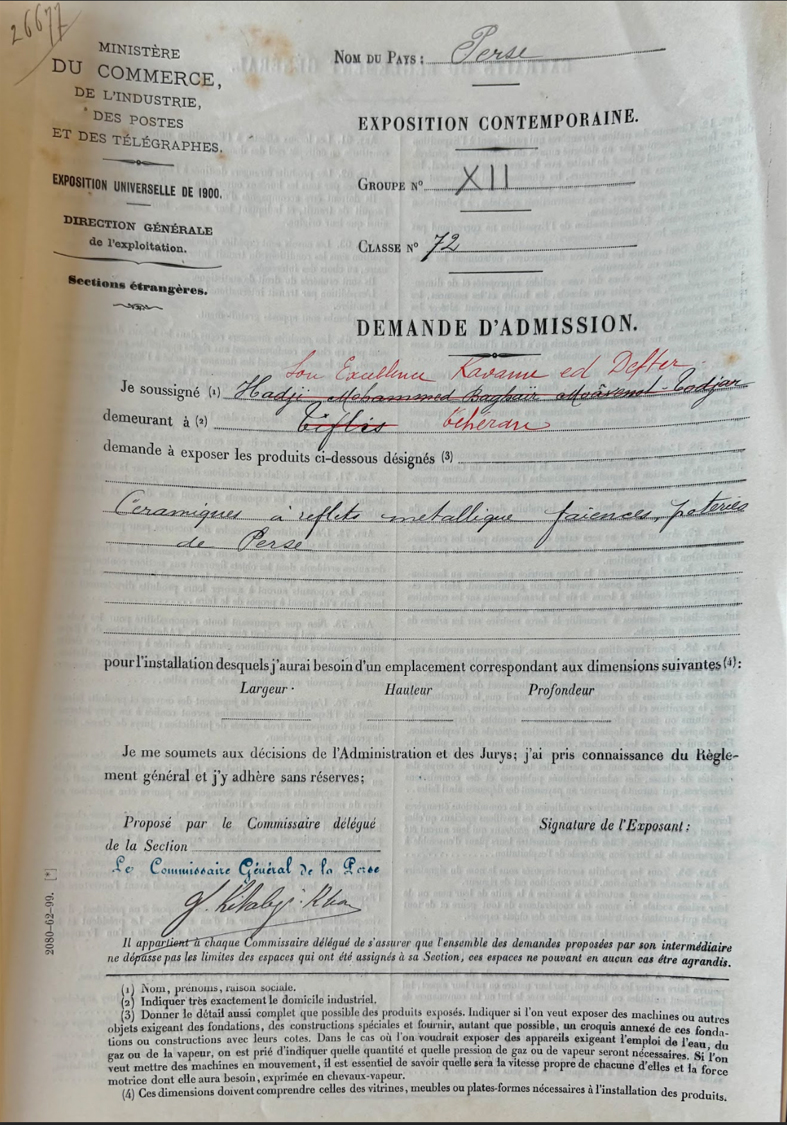 26677
MINISTÈRE
DU COMMERCE,
DE L'INDUSTRIE,
DES POSTES
ET DES TÉLÉGRAPHES.
EXPOSITION UNIVERSELLE DE 1900.
DIRECTION GÉNÉRALE
de l'exploitation.
Sections étrangères.
NOM DU PAYS : Perse
EXPOSITION CONTEMPORAINE.
GROUPE N° XII
CLASSE N° 72
DEMANDE D'ADMISSION.
Son Excellence Kavame ed Defter
Je soussigné (1) Hadji Mohammed Baghaïr Moâvenul-Todjar
demeurant à (2) Tiflis Téhéran
demande à exposer les produits ci-dessous désignés (3)
Ceramiques à reflets metallique faiences, poteries
de Perse
pour l'installation desquels j'aurai besoin d'un emplacement correspondant aux dimensions suivantes (4) :
Largeur Hauteur Profondeur
Je me soumets aux décisions de l'Administration et des Jurys; j'ai pris connaissance du Règle-
ment général et j'y adhère sans réserves;
Proposé par le Commissaire délégué
de la Section
Le Commissaire Général de la Perse
Kitabgi Khan
Signature de l'Exposant :
2080-62-99. [*]
Il appartient à chaque Commissaire délégué de s'assurer que l'ensemble des demandes proposées par son intermédiaire
ne dépasse pas les limites des espaces qui ont été assignés à sa Section, ces espaces ne pouvant en aucun cas être agrandis.
(1) Nom, prénoms, raison sociale.
(2) Indiquer très exactement le domicile industriel.
(3) Donner le détail aussi complet que possible des produits exposés. Indiquer si l'on veut exposer des machines ou autres
objets exigeant des fondations, des constructions spéciales et fournir, autant que possible, un croquis annexé de ces fonda-
tions ou constructions avec leurs cotes. Dans le cas où l'on voudrait exposer des appareils exigeant l'emploi de l'eau, du
gaz ou de la vapeur, on est prié d'indiquer quelle quantité et quelle pression de gaz ou de vapeur seront nécessaires. Si l'on
veut mettre des machines en mouvement, il est essentiel de savoir quelle sera la vitesse propre de chacune d'elles et la force
motrice dont elle aura besoin, exprimée en chevaux-vapeur.
(4) Ces dimensions doivent comprendre celles des vitrines, meubles ou plates-formes nécessaires à l'installation des produits.